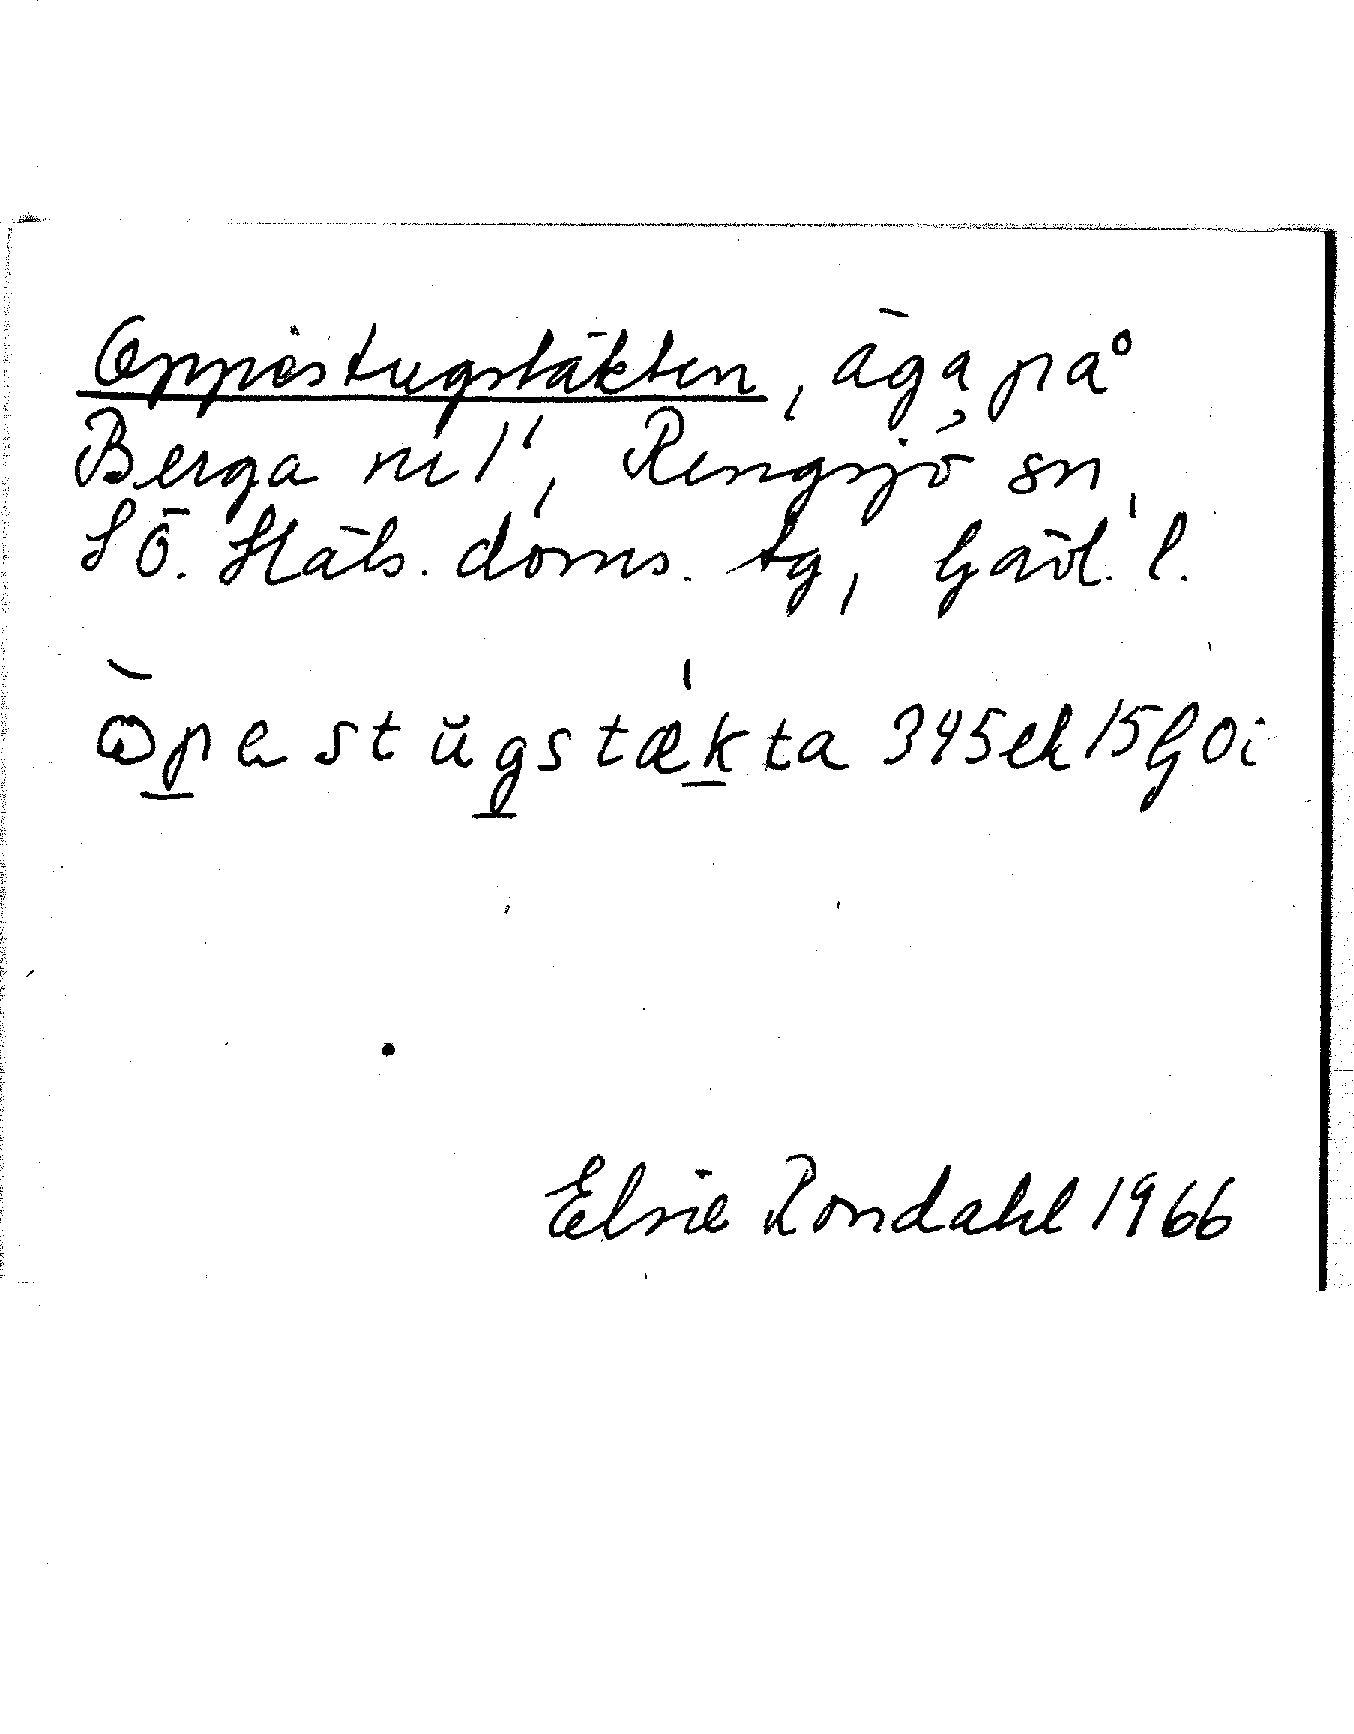 Oppistugstäkten, äga på
Berga nr 1, Rengsjö sn,
SÖ. Häls. doms. tg, Gävl. l.
ɷ̀pestŭgstækta 345ek 15G0i
Elsie Rondahl 1966